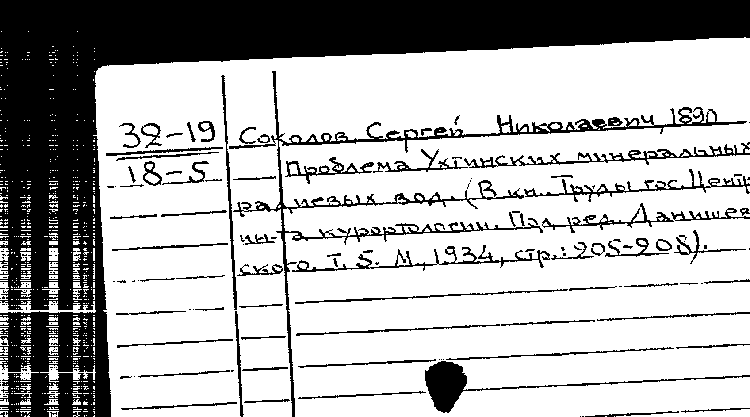 32-19
18-5
Соколов, Сергей Николаевич, 1890
Проблема Ухтинских минеральных
радиевых вод. (В кн. Труды гос. Центр
ин-та курортологии. Под ред. Данишев
ского. Т. 5. М., 1934, стр.: 205-208).